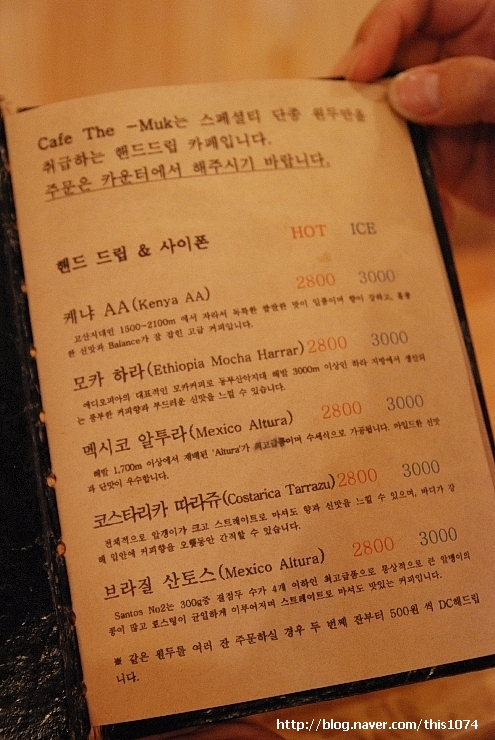 Cafe The -Muk는 스페셜티 단종 원두만을
취급하는 핸드드립 카페입니다.
주문은 카운터에서 해주시기 바랍니다.
핸드 드립 & 사이폰 HOT ICE
케냐 AA(Kenya AA) 2800 3000
고산지대인 1500~2100m 에서 자라서 독특한 쌉쌀한 맛이 일품이며 향이 강하고, 훌륭
한 신맛과 Balance가 잘 잡힌 고급 커피입니다.
모카 하라(Ethiopia Mocha Harrar) 2800 3000
에디오피아의 대표적인 모카커피로 동부산악지대 해발 3000m 이상인 하라 지방에서 생산되
는 풍부한 커피향과 부드러운 신맛을 느낄 수 있습니다.
멕시코 알투라(Mexico Altura) 2800 3000
해발 1,700m 이상에서 재배된 'Altura'가 최고급품이며 수세식으로 가공됩니다. 마일드한 신맛
과 단맛이 우수합니다.
코스타리카 따라쥬(Costarica Tarrazu) 2800 3000
전체적으로 알갱이가 크고 스트레이트로 마셔도 향과 신맛을 느낄 수 있으며, 바디가 강
해 입안에 커피향을 오랫동안 간직할 수 있습니다.
브라질 산토스(Mexico Altura) 2800 3000
Santos No2는 300g중 결점두 수가 4개 이하인 최고급품으로 통상적으로 큰 알맹이의
콩이 많고 로스팅이 균일하게 이루어지며 스트레이트로 마셔도 맛있는 커피입니다.
※ 같은 원두를 여러 잔 주문하실 경우 두 번째 잔부터 500원 씩 DC해드립
니다.
http://blog.naver.com/this1074